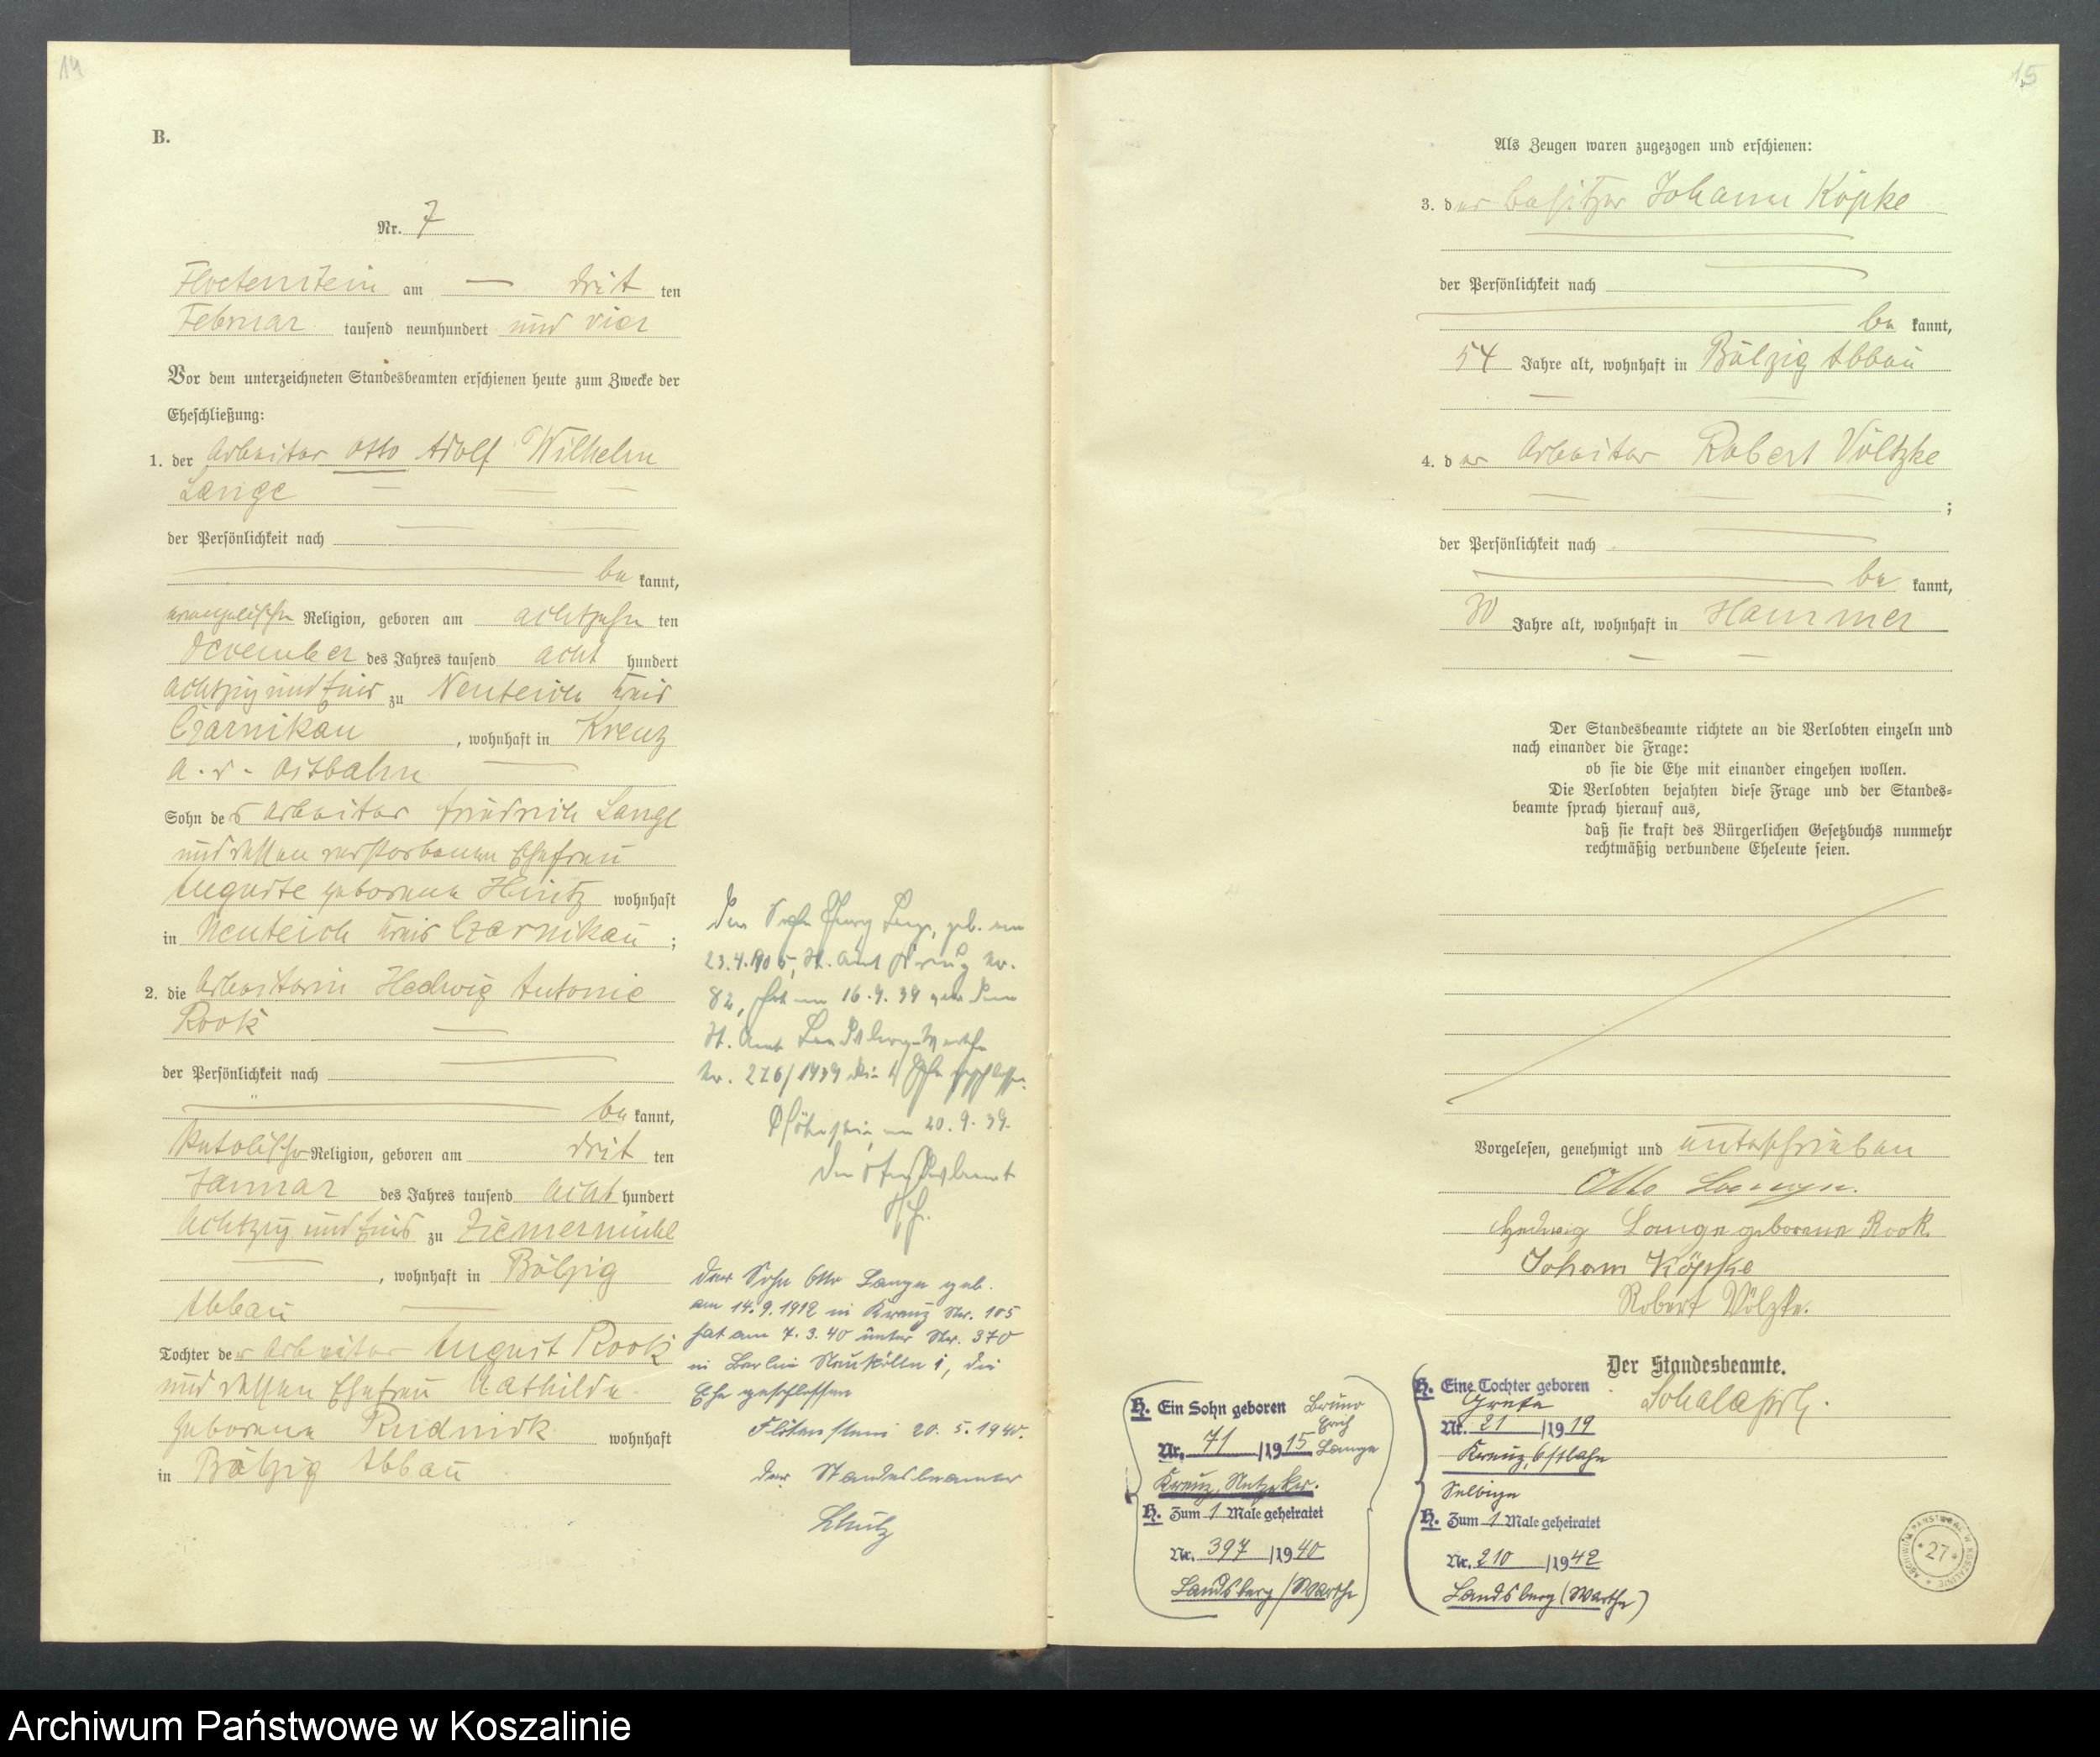 14
B.
Nr. 7
Floetenstein am — dritten
Februar tausend neunhundert und vier
Vor dem unterzeichneten Standesbeamten erschienen heute zum Zwecke der
Eheschließung:
1. der Arbeiter Otto Adolf Wilhelm
Lange
der Persönlichkeit nach
be kannt,
evangelischer Religion, geboren am achtzehn ten
November des Jahres tausend acht hundert
achtzig und eins zu Neuteich Kreis
Czarnikau, wohnhaft in Kreuz
a. d. Ostbahn
Sohn des Arbeiter Friedrich Lange
und dessen verstorbenen Ehefrau
Auguste geborene Hintz wohnhaft
in Neuteich Kreis Czarnikau;
2. die Arbeiterin Hedwig Antonie
Rook
der Persönlichkeit nach
be kannt,
katolischer Religion, geboren am dritten
Januar des Jahres tausend acht hundert
achtzig und eins zu Ziemermühl
, wohnhaft in Bölzig
Abbau
Tochter der Arbeiter August Rook
und dessen Ehefrau Mathilde
geborene Rudnick wohnhaft
in Bölzig Abbau
Der Sohn Lange, geb. am
23.4.1905, St. Amt Kreuz Nr.
82, hat am 16.9.39 vor dem
St. Amt Landsberg-Warthe
Nr. 276/1939 die 1. Ehe geschlossen.
Flötenstein, am 20.9.39.
Der Standesbeamte
Der Sohn Otto Lange geb.
am 14.9.1912 in Kreuz Nr. 105
hat am 7.3.40 unter Nr. 370
in Berlin Neukölln 1, die
Ehe geschlossen
Flötenstein 20.5.1940.
Der Standesbeamte
Schulz
15
Als Zeugen waren zugezogen und erschienen:
3. der Besitzer Johann Köpke
der Persönlichkeit nach
be kannt,
54 Jahre alt, wohnhaft in Bölzig Abbau
4. der Arbeiter Robert Völtzke
;
der Persönlichkeit nach
be kannt,
30 Jahre alt, wohnhaft in Hammer
Der Standesbeamte richtete an die Verlobten einzeln und
nach einander die Frage:
ob sie die Ehe mit einander eingehen wollen.
Die Verlobten bejahten diese Frage und der Standes-
beamte sprach hierauf aus,
daß sie kraft des Bürgerlichen Gesetzbuchs nunmehr
rechtmäßig verbundene Eheleute seien.
Vorgelesen, genehmigt und unterschrieben
Otto Lange.
Hedwig Lange geborene Rook.
Johann Köpke
Robert Völzke.
Der Standesbeamte.
H. Ein Sohn geboren Bruno
Erich
Nr. 71/1915 Lange
Kreuz, Netzekr.
H. Zum 1 Male geheiratet
Nr. 397/1940
Landsberg/Warthe
H. Eine Tochter geboren
Grete
Nr. 21/1919
Kreuz, Ostbahn
Selbige
H. Zum 1 Male geheiratet
Nr. 210/1942
Landsberg (Warthe)
ARCHIWUM PAŃSTWOWE W KOSZALINIE
* 27 *
Archiwum Państwowe w Koszalinie